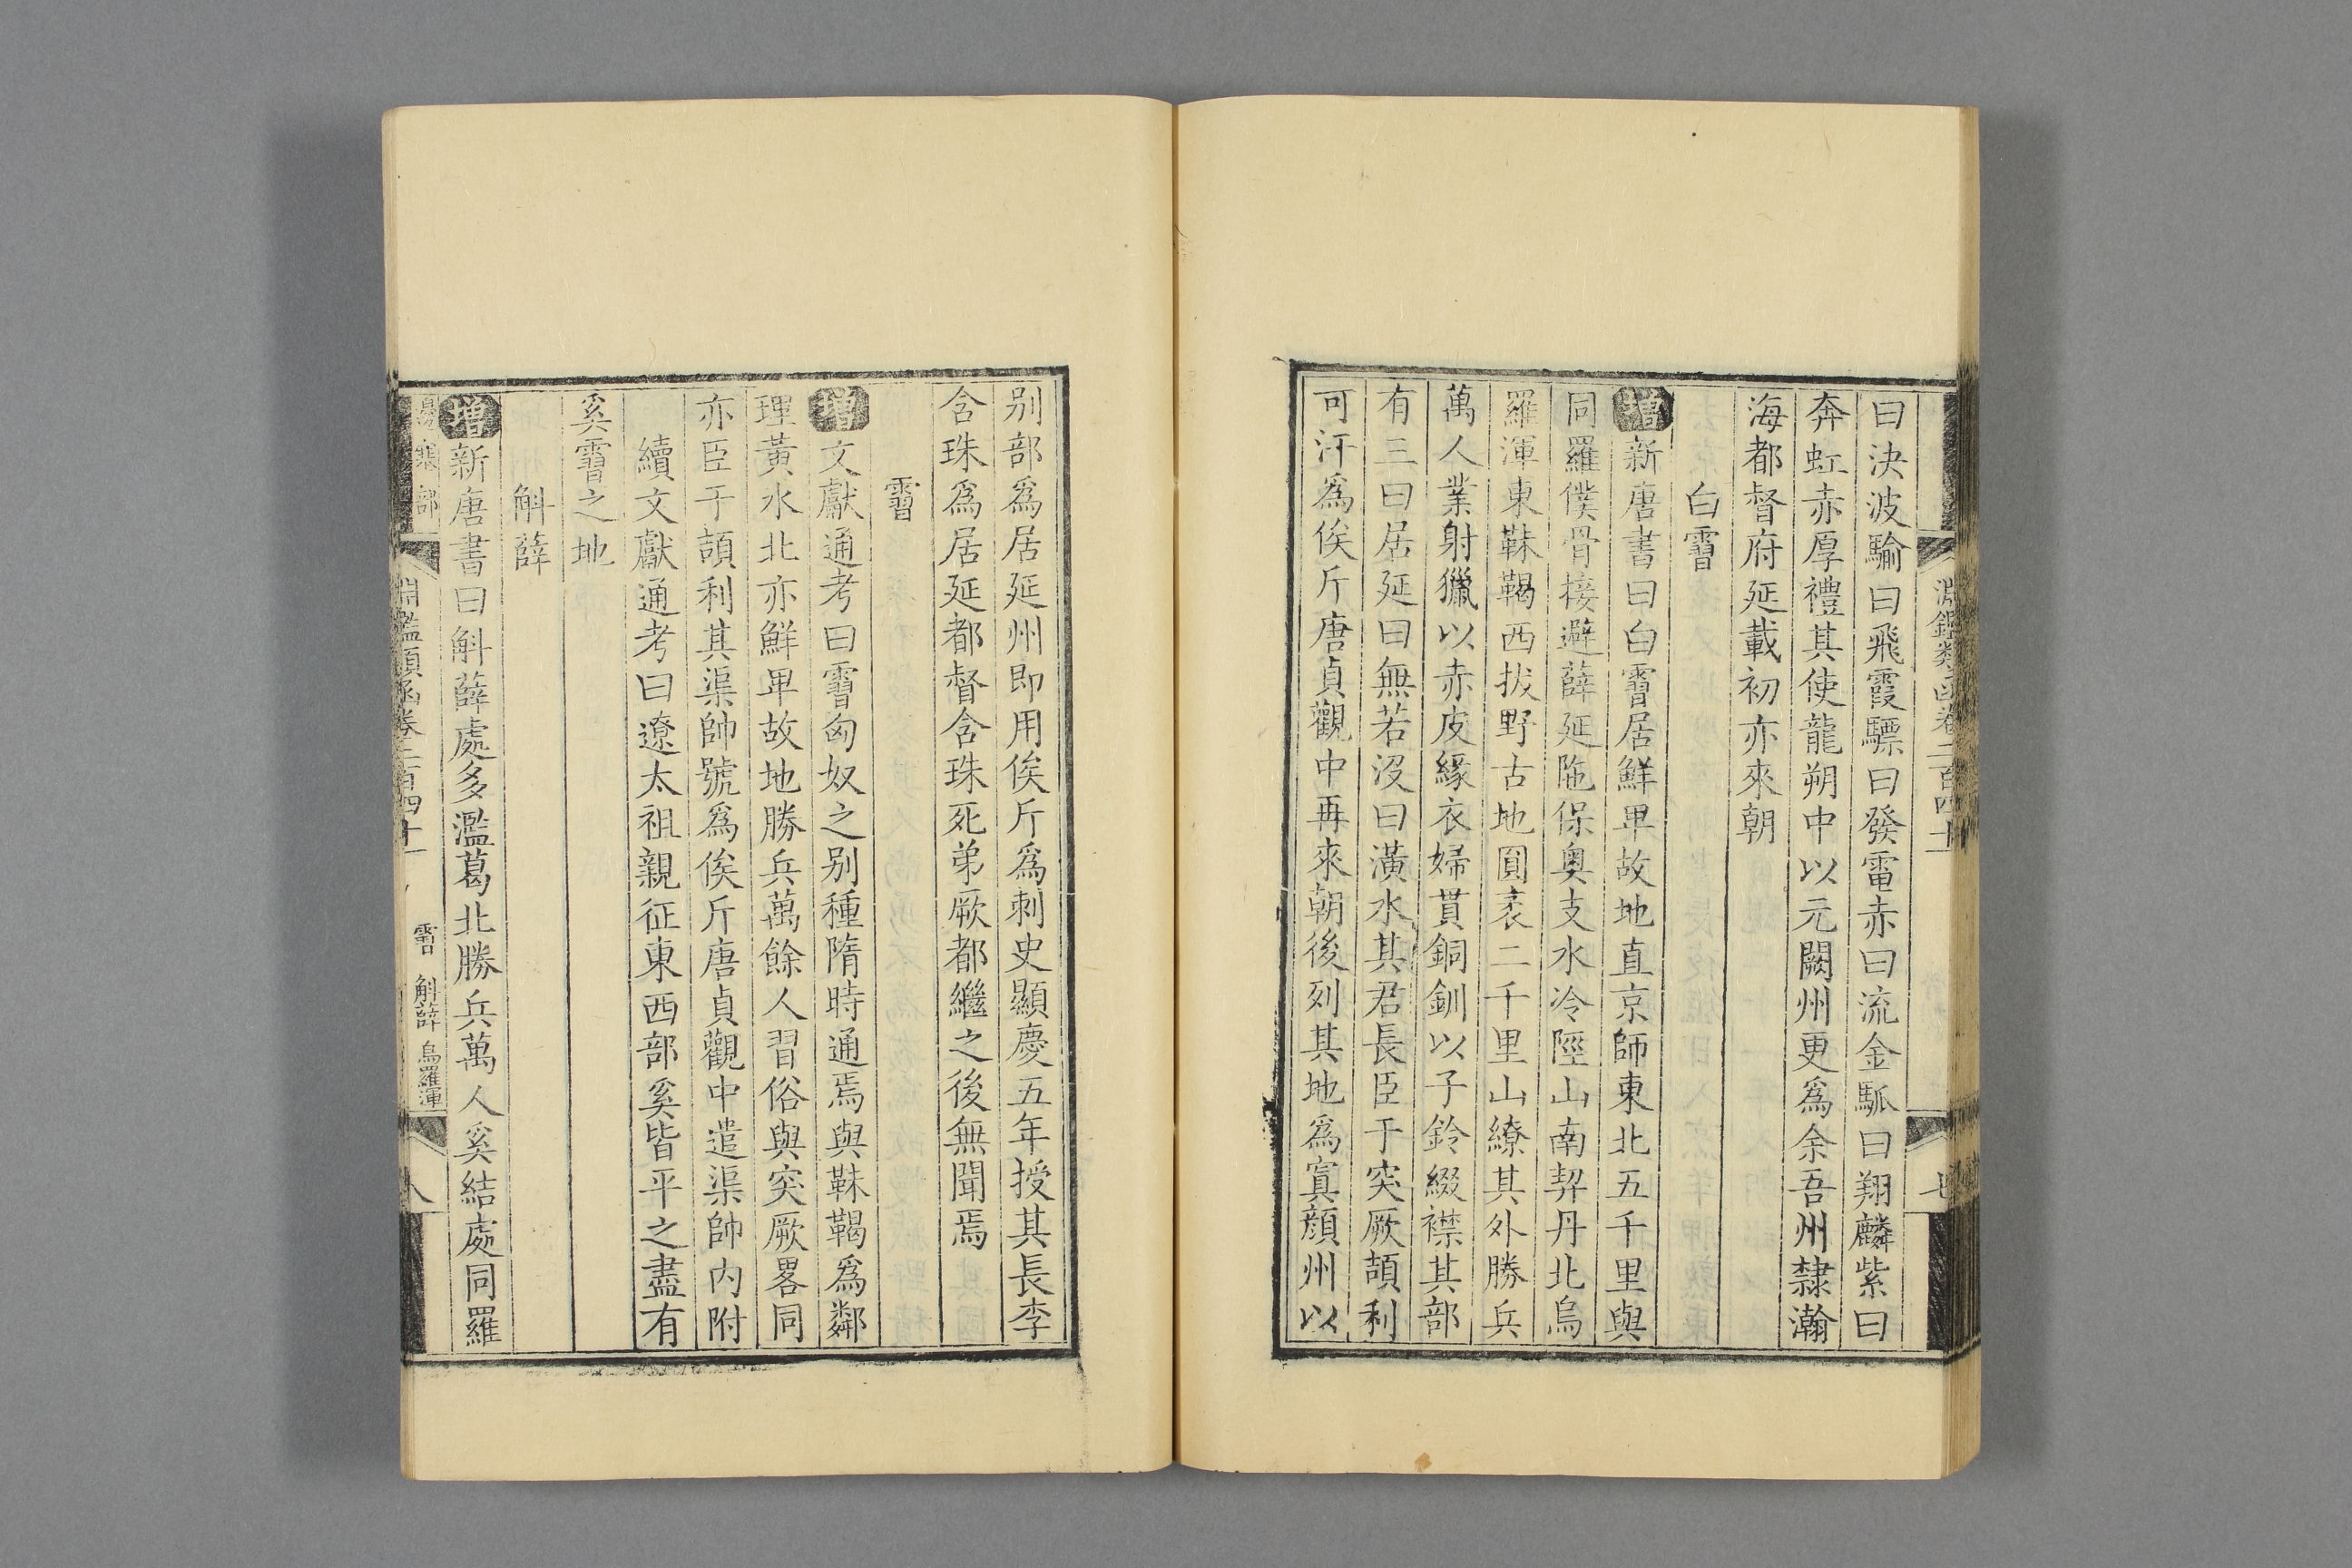 淵鑑類函卷二百四十一
七
曰決波騟曰飛霞驃曰發電赤曰流金𩢍曰翔麟紫曰
奔虹赤厚禮其使龍朔中以元闕州更爲余吾州隸瀚
海都督府延載初亦來朝
白霫
增新唐書曰白霫居鮮卑故地直京師東北五千里與
同羅僕骨接避薛延陁保奧支水冷陘山南契丹北烏
羅渾東靺鞨西拔野古地圓袤二千里山繚其外勝兵
萬人業射獵以赤皮緣衣婦貫銅釧以子鈴綴襟其部
有三曰居延曰無若沒曰潢水其君長臣于突厥頡利
可汗爲俟斤唐貞觀中再來朝後列其地爲寘顔州以
别部爲居延州即用俟斤爲刺史顯慶五年授其長李
含珠爲居延都督含珠死弟厥都繼之後無聞焉
霫
增文獻通考曰霫匈奴之别種隋時通焉與靺鞨爲鄰
理黃水北亦鮮卑故地勝兵萬餘人習俗與突厥畧同
亦臣于頡利其渠帥號爲俟斤唐貞觀中遣渠帥内附
續文獻通考曰遼太祖親征東西部奚皆平之盡有
奚霫之地
斛薛
增新唐書曰斛薛處多濫葛北勝兵萬人奚結處同羅
邊塞部
淵鑑類函卷二百四十一
霫 斛薛 烏羅渾
八